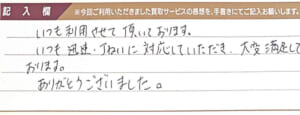 記入欄
※今回ご利用いただきました買取サービスの感想を、手書きにてご記入お願いします。
いつも利用させて頂いております。
いつも迅速・丁ねいに対応していただき、大変満足して
おります。
ありがとうございました。